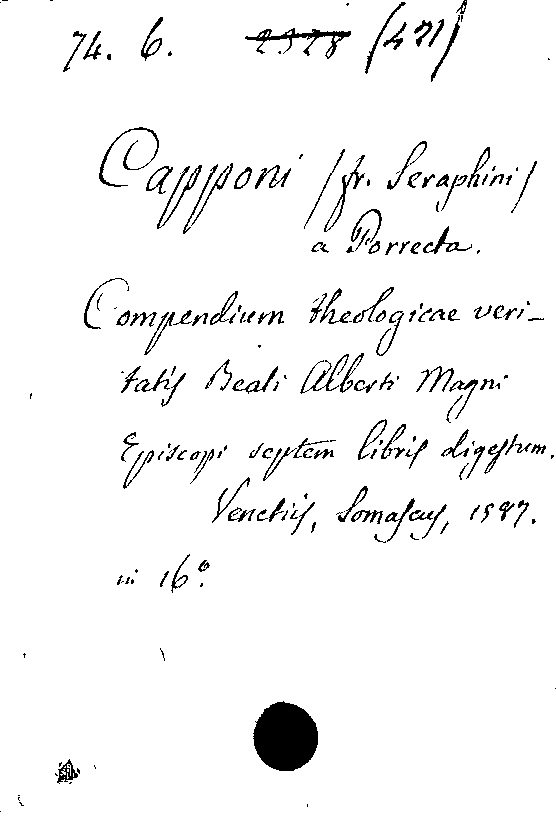 74. 6. 2328 (471)
Capponi /fr. Seraphini/
a Porrecta.
Compendium theologicae veri-
tatis Beati Alberti Magni
Episcopi septem libris digestum.
Venetiis, Somascus, 1587.
in 16º.